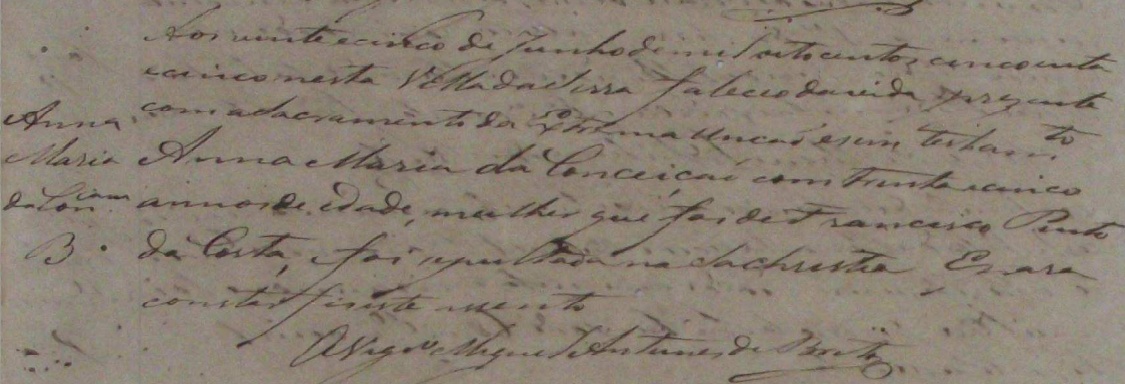 Aos vinte e cinco de Junho de mil oito centos cincoenta
e cinco nesta Villa da Serra faleceo da vida prezente
com a Sacramento da Extrema Unção e sem testam.to
Anna Maria da Conceição com trinta e cinco
Anna
Maria
da Con.cam
B.
annos de idade, mulher que foi de Francisco Pinto
da Costa, foi sepultada na Sachristia E para
constar fiz este assento
O Vigr.o Miguel Antunes de Brito